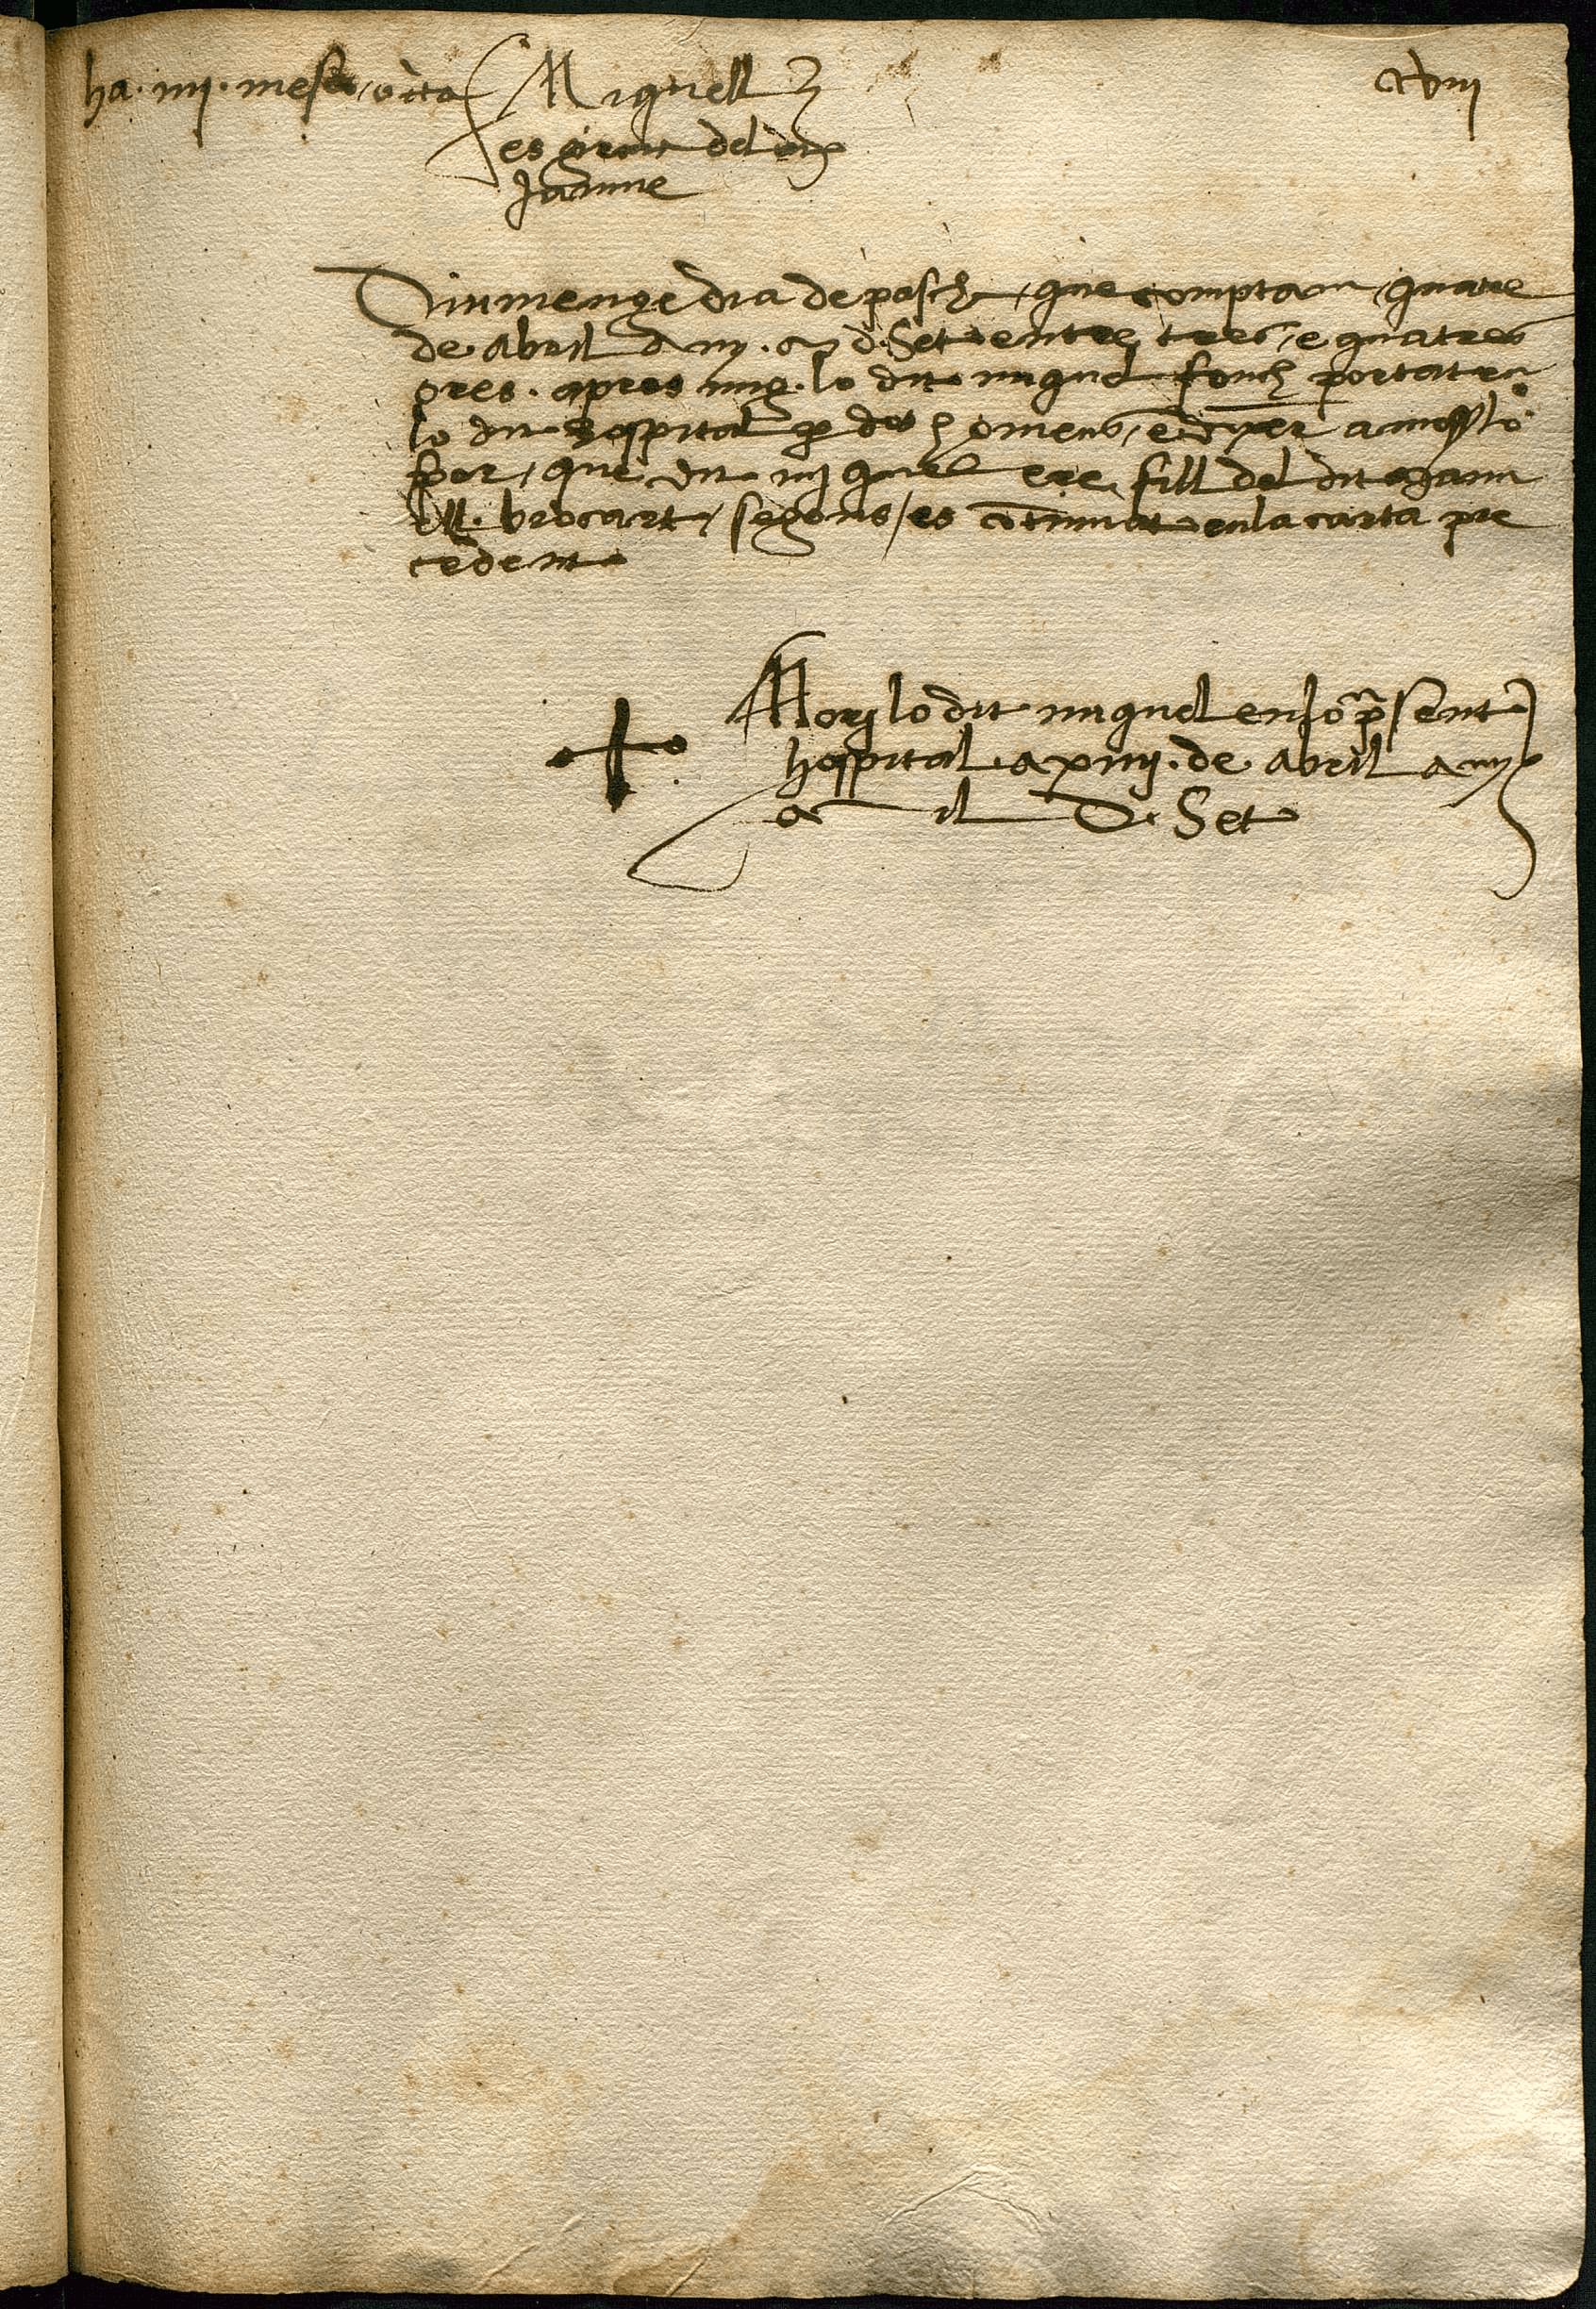 ha . iiij . mesos o ito Miquell
cxviij
es germa del dit
Jaume
Diumenge dia de pascha que comptam quatre
de Abril Any . M d . Set entre tres e quatre
ores . apres mig . lo dit miquel fonch portat en
lo dit hospital p dos homens e dixer a moss lo
por que dit miquel ere fill del dit Jaume
brocart segons es continuat en la carta pre
cedent
Mori lo dit miquel en lo psent
hospital a xiiij . de Abril any
M il D . Set